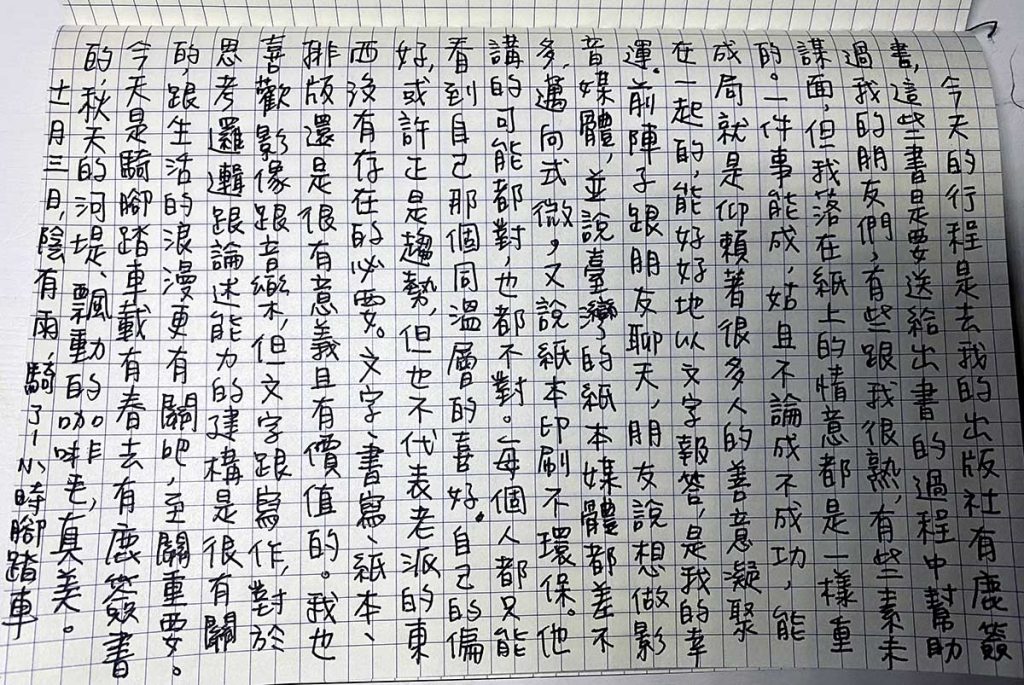 今天的行程是去我的出版社有鹿簽
書,這些書是要送給出書的過程中幫助
過我的朋友們,有些跟我很熟,有些素未
謀面,但我落在紙上的情意都是一樣重
的。一件事能成,姑且不論成不成功,能
成局就是仰賴著很多人的善意凝聚
在一起的,能好好地以文字報答,是我的幸
運。前陣子跟朋友聊天,朋友說想做影
音媒體,並說臺灣的紙本媒體都差不
多,邁向式微,又說紙本印刷不環保。他
講的可能都對,也都不對。每個人都只能
看到自己那個同溫層的喜好。自己的偏
好,或許正是趨勢,但也不代表老派的東
西沒有存在的必要。文字、書寫、紙本、
排版還是很有意義且有價值的。我也
喜歡影像跟音樂,但文字跟寫作,對於
思考邏輯跟論述能力的建構是很有關
的,跟生活的浪漫更有關吧,至關重要。
今天是騎腳踏車載有春去有鹿簽書
的,秋天的河堤、飄動的咖啡
十一月三日,陰有雨,騎了1小時腳踏車